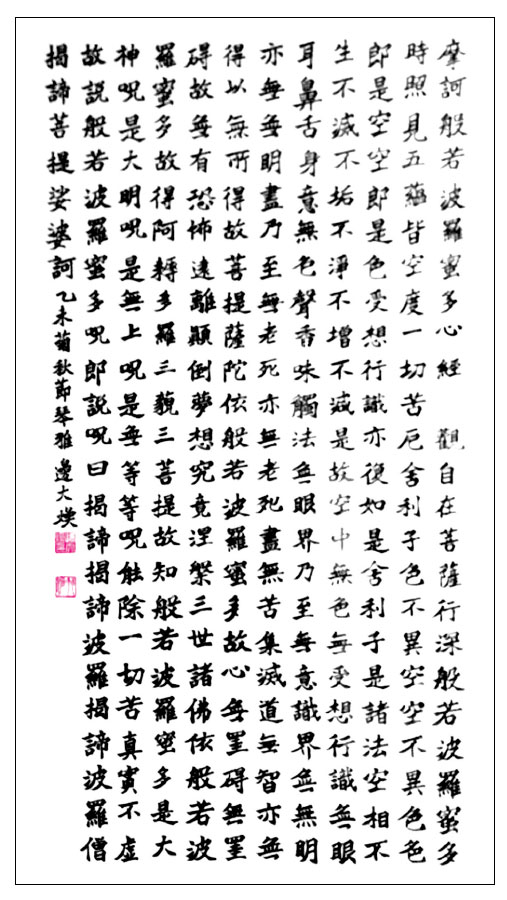 摩訶般若波羅蜜多心經 觀自在菩薩行深般若波羅蜜多
時照見五蘊皆空度一切苦厄舍利子色不異空空不異色色
即是空空即是色受想行識亦復如是舍利子是諸法空相不
生不滅不垢不淨不增不減是故空中無色無受想行識無眼
耳鼻舌身意無色聲香味觸法無眼界乃至無意識界無無明
亦無無明盡乃至無老死亦無老死盡無苦集滅道無智亦無
得以無所得故菩提薩陀依般若波羅蜜多故心無罣碍無罣
碍故無有恐怖遠離顚倒夢想究竟涅槃三世諸佛依般若波
羅蜜多故得阿耨多羅三藐三菩提故知般若波羅蜜多是大
神呪是大明呪是無上呪是無等等呪能除一切苦真實不虛
故說般若波羅蜜多呪即說呪曰揭諦揭諦波羅揭諦波羅僧
揭諦菩提娑婆訶 乙未菊秋節琴雅邊大煐